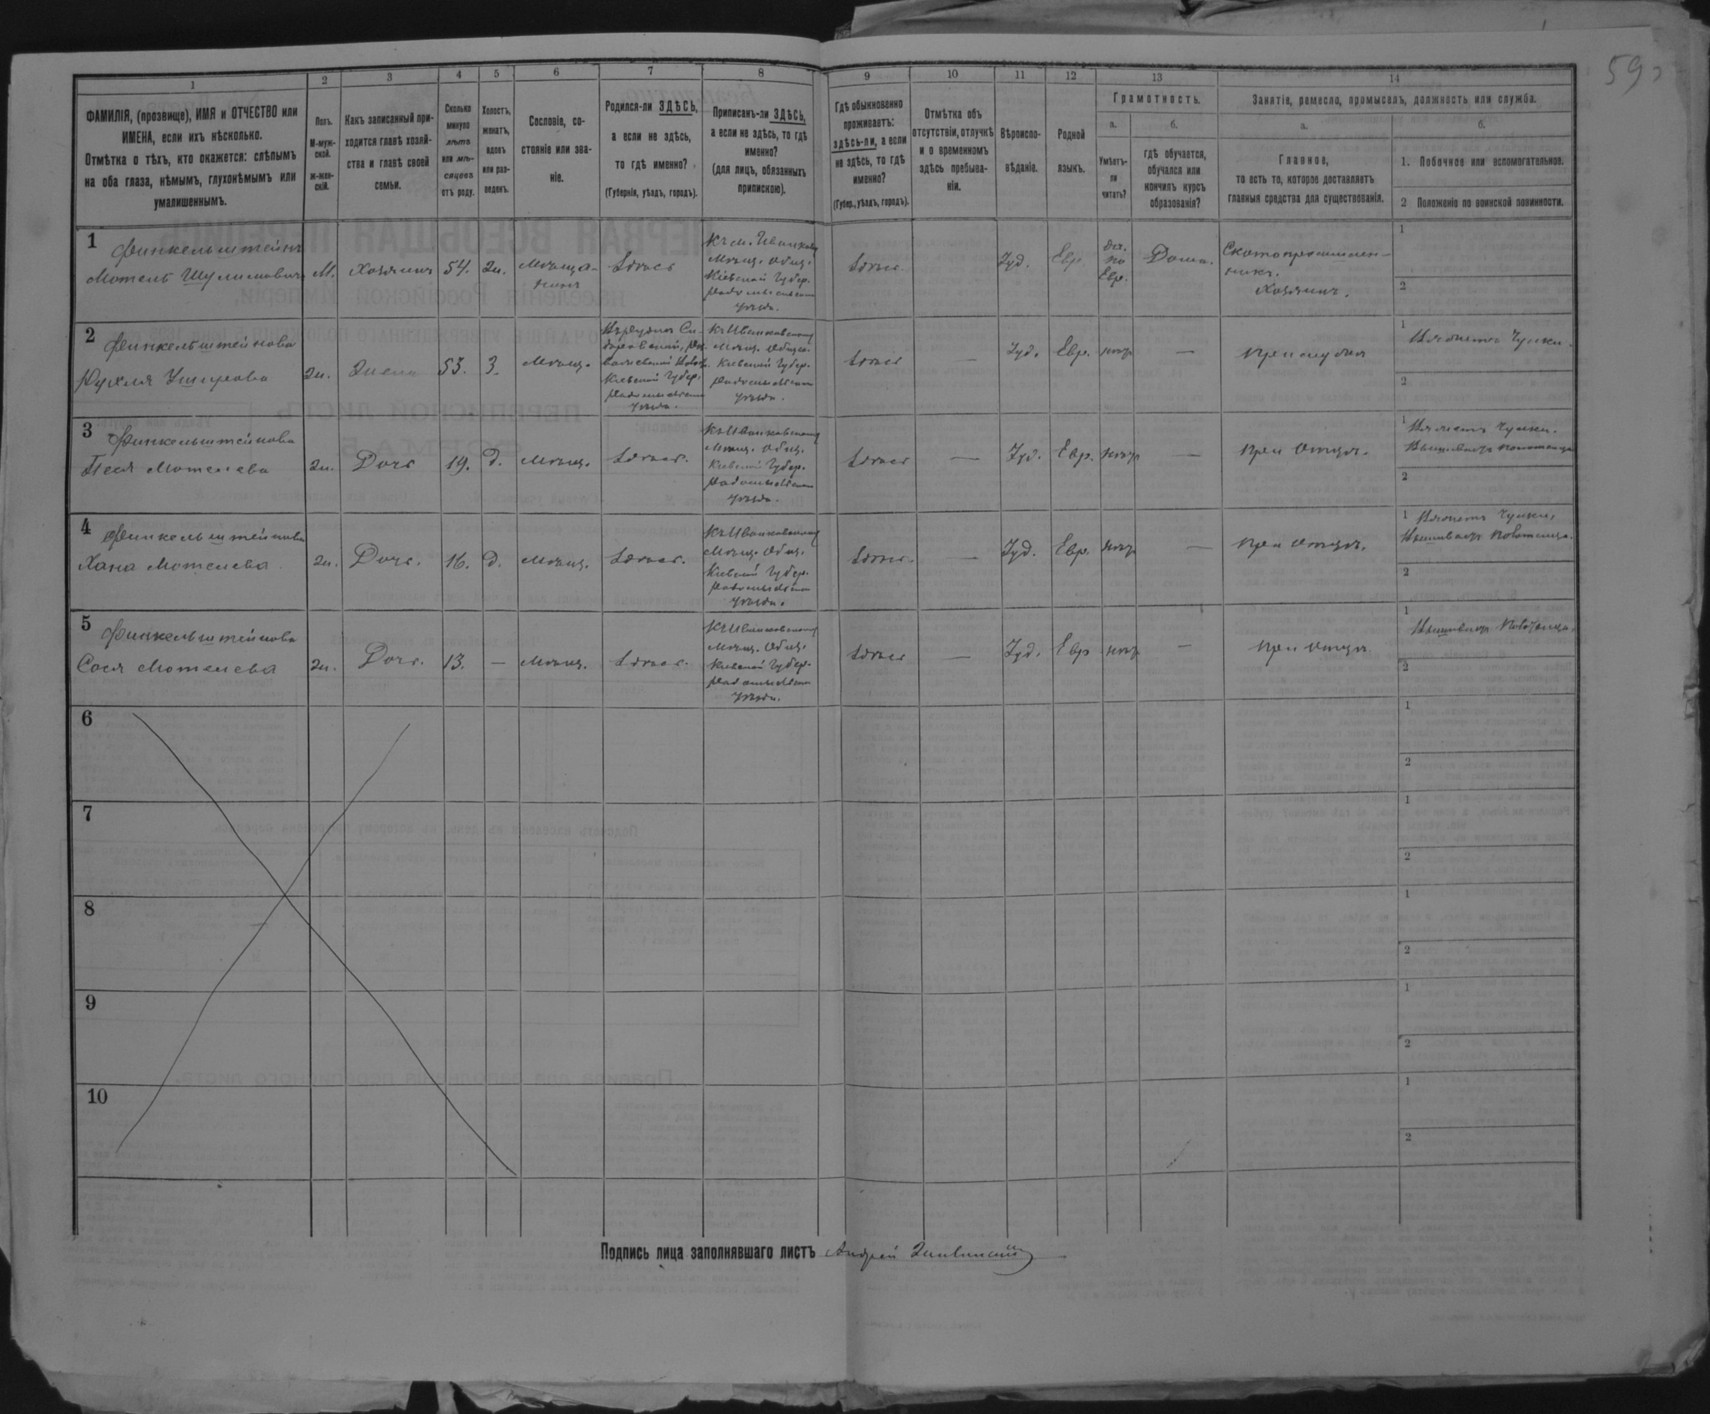 59
1
2
3
4
5
6
7
8
9
10
11
12
13
14
ФАМИЛІЯ, (прозвище), ИМЯ и ОТЧЕСТВО или
ИМЕНА, если ихъ нѣсколько.
Отмѣтка о тѣхъ, кто окажется: слѣпымъ
на оба глаза, нѣмымъ, глухонѣмымъ или
умалишеннымъ.
Полъ.
М-муж-
ской.
ж-жен-
скій.
Какъ записанный при-
ходится главѣ хозяй-
ства и главѣ своей
семьи.
Сколько
минуло
лѣтъ
или мѣ-
сяцевъ
отъ роду.
Холостъ,
женатъ,
вдовъ
или раз-
веденъ.
Сословіе, со-
стояніе или зва-
ніе.
Родился-ли ЗДѢСЬ,
а если не здѣсь,
то гдѣ именно?
(Губернія, уѣздъ, городъ).
Приписанъ-ли ЗДѢСЬ,
а если не здѣсь, то гдѣ
именно?
(для лицъ, обязанныхъ
припискою).
Гдѣ обыкновенно
проживаетъ:
здѣсь-ли, а если
не здѣсь, то гдѣ
именно?
(Губер., уѣздъ, городъ).
Отмѣтка объ
отсутствіи, отлучкѣ
и о временномъ
здѣсь пребыва-
ніи.
Вѣроиспо-
вѣданіе.
Родной
языкъ.
Грамотность.
а.
Умѣетъ-
ли
читать?
б.
гдѣ обучается,
обучался или
кончилъ курсъ
образованія?
Занятіе, ремесло, промыселъ, должность или служба.
а.
Главное,
то есть то, которое доставляетъ
главныя средства для существованія.
б.
1. Побочное или вспомогательное.
2 Положеніе по воинской повинности.
1
Финкельштейнъ
Мотель Шулимовичъ
М.
Хозяинъ
54.
ж.
Мѣща-
нинъ
Здѣсь
Къ м. Иванков
Мѣщ. Общ.
Кіевской Губер.
Радомысльскаго
уѣзда.
Здѣсь
Іуд.
Евр.
да.
по
Евр.
Дома.
Скотопромышлен-
никъ.
Хозяинъ.
1
2
2
Финкельштейнова
Рухля Ушерова
ж.
Жена
53.
З.
Мѣщ.
Кіевской Губер.
уѣзда.
Къ Иванковскому
Мѣщ. Общ.
Кіевской Губер.
Радомысльскаго
уѣзда.
Здѣсь
—
Іуд.
Евр.
нѣтъ
—
При мужѣ
1
Вяжетъ Чулки.
2
3
Финкельштейнова
Песя Мотелева
ж.
Дочь
19.
Д.
Мѣщ.
Здѣсь.
Къ Иванковскому
Мѣщ. Общ.
Кіевской Губер.
Радомысльскаго
уѣзда.
Здѣсь
Іуд.
Евр.
нѣтъ
—
При отцѣ.
1
Вяжетъ Чулки.
Вышиваетъ полотенца
2
4
Финкельштейнова
Хана Мотелева
ж.
Дочь.
16.
Д.
Мѣщ.
Здѣсь.
Къ Иванковскому
Мѣщ. Общ.
Кіевской Губер.
Радомысльскаго
уѣзда.
Здѣсь.
—
Іуд.
Евр.
нѣтъ
—
При отцѣ.
1
Вяжетъ Чулки,
Вышиваетъ полотенца.
2
5
Финкельштейнова
Сося Мотелева
ж.
Дочь.
13.
—
Мѣщ.
Здѣсь.
Къ Иванковскому
Мѣщ. Общ.
Кіевской Губер.
Радомысльскаго
уѣзда.
Здѣсь
—
Іуд.
Евр
нѣтъ
—
При отцѣ
1
Вышиваетъ полотенца.
2
6
1
2
7
1
2
8
1
2
9
1
2
10
1
2
Подпись лица заполнявшаго листъ Андрей